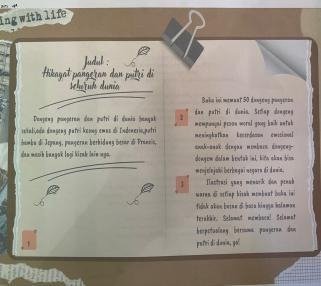 ing with life
Judul :
Hikayat pangeran dan putri di
seluruh dunia
Dongeng pangeran dan putri di dunia banyak
sekali,ada dongeng putri keong emas di Indonesia,putri
bambu di Jepang, pangeran berhidung besar di Prancis,
dan masih banyak lagi kisah lain nya.
1
Buku ini memuat 50 dongeng pangeran
dan putri di dunia. Setiap dongeng
2
mempunyai pesan moral yang baik untuk
meningkatkan kecerdasan emosional
anak-anak dengan membaca dongeng-
dongem dalam bentuk ini, kita akan bisa
menjelajahi berbagai negara di dunia.
3
Ilustrasi yang menarik dan penuh
warna di setiap kisah membuat buku ini
tidak akan bosan di baca hingga halaman
terakhir. Selamat membaca! Selamat
berpetualang bersama pangeran dan
putri di dunia, ya!